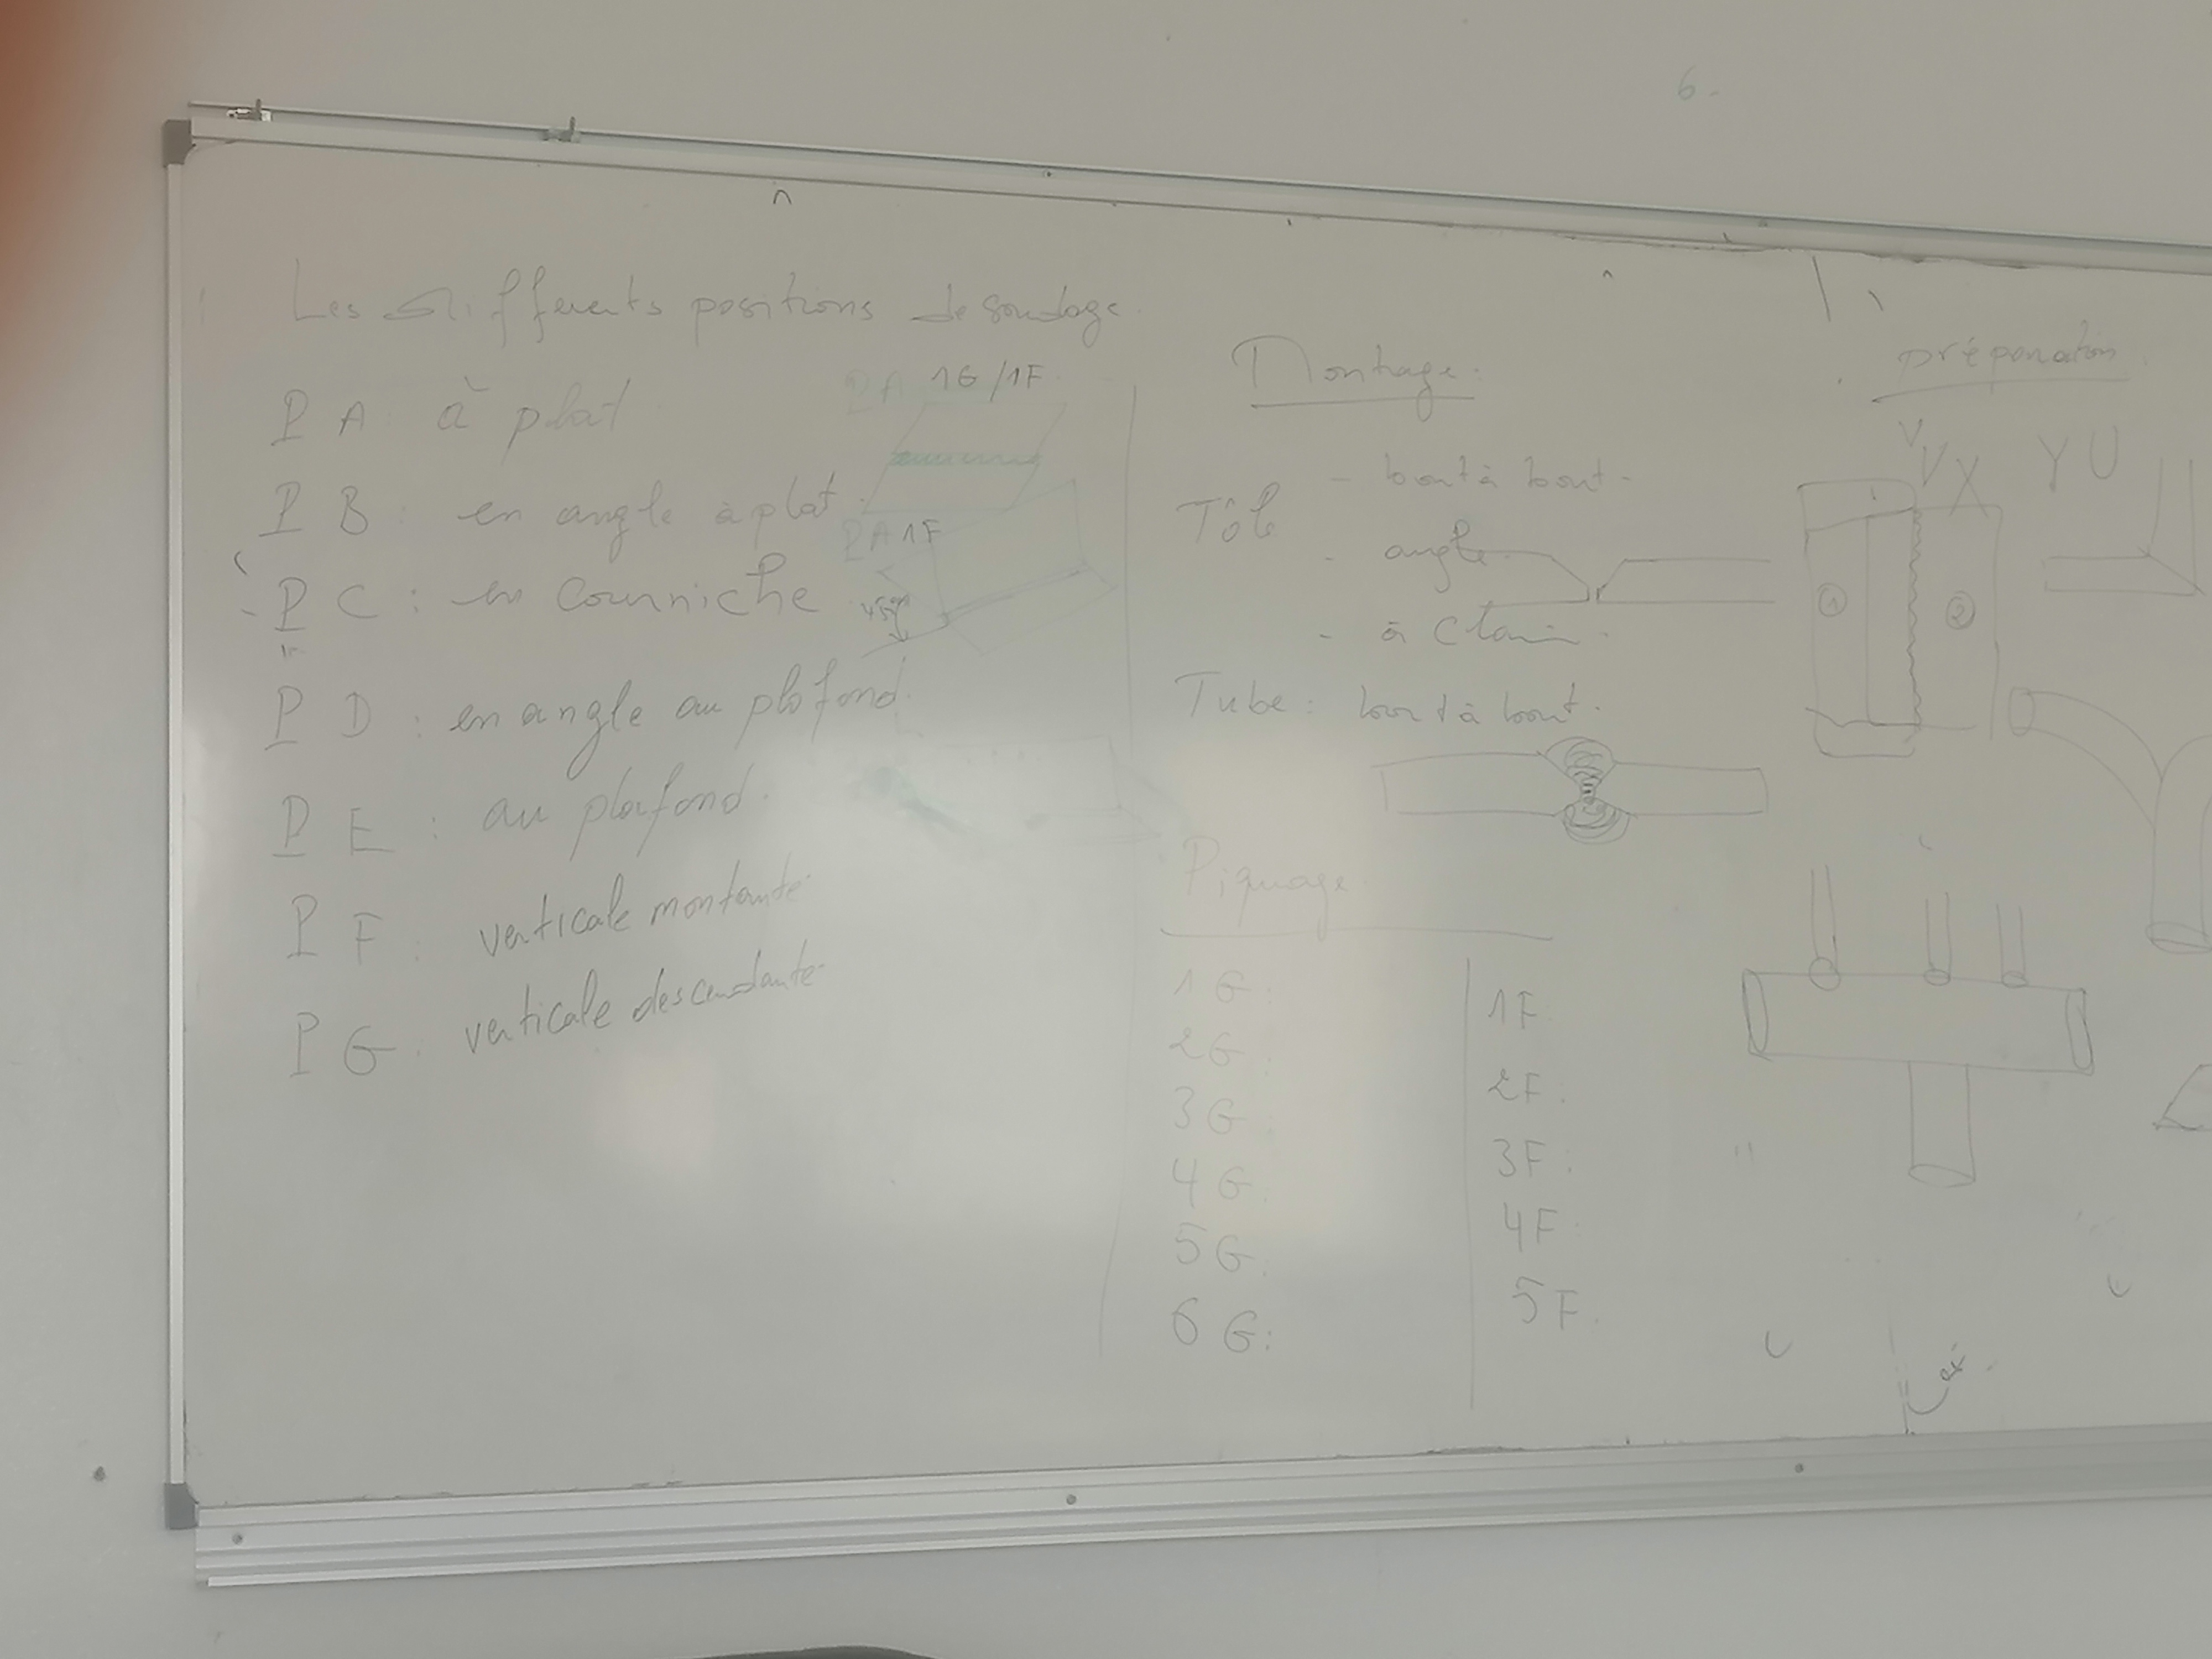 Les differents positions de soudage.
P A : à plat
PA 1G/1F
P B : en angle à plat.
PA 1F
45°
P C : en Courniche
P D : en angle au plafond.
P E : au plafond.
P F : verticale montante
P G : verticale descendante
Montage :
Tôle
- bout à bout.
- angle.
- à Clain.
Tube : bout à bout.
Piquage.
1G :
2G :
3G :
4G :
5G :
6G :
1F
2F :
3F :
4F :
5F :
préparation
V
V X Y U
1
2
6